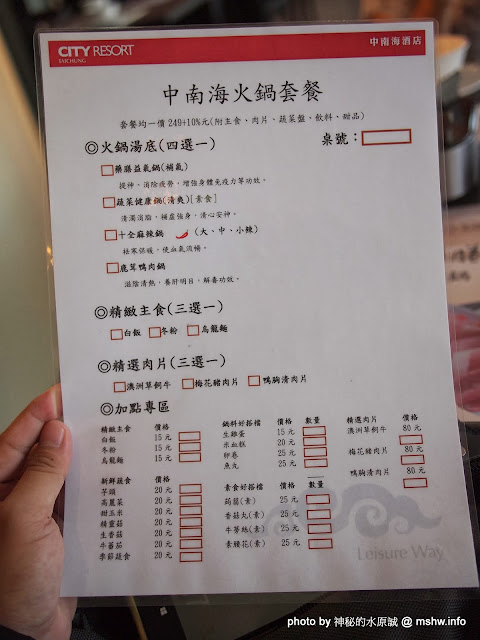 CITY RESORT
TAICHUNG
中南海酒店
中南海火鍋套餐
套餐均一價 249+10%元(附主食、肉片、蔬菜盤、飲料、甜品)
◎火鍋湯底(四選一)
桌號：
藥膳益氣鍋(補氣)
提神，消除疲勞，增強身體免疫力等功效。
蔬菜健康鍋(清爽)[素食]
清濁消脂，補虛強身，清心安神。
十全麻辣鍋 (大、中、小辣)
袪寒保暖，使血氣流暢。
鹿茸鴨肉鍋
滋陰清熱，養肝明目，解毒功效。
◎精緻主食(三選一)
白飯 冬粉 烏龍麵
◎精選肉片(三選一)
澳洲草飼牛 梅花豬肉片 鴨胸清肉片
◎加點專區
精緻主食 價格
白飯 15 元
冬粉 15 元
烏龍麵 15 元
新鮮蔬食 價格
芋頭 20 元
高麗菜 20 元
甜玉米 20 元
精靈菇 20 元
生香菇 20 元
牛蕃茄 20 元
季節蔬食 20 元
鍋料好搭檔 價格 數量
生雞蛋 15 元
米血糕 20 元
卵卷 25 元
魚丸 25 元
素食好搭檔 價格 數量
蒟蒻(素) 25 元
香菇丸(素) 25 元
牛蒡絲(素) 25 元
素腰花(素) 25 元
精選肉片 價格
澳洲草飼牛 80 元
梅花豬肉片 80 元
鴨胸清肉片 80 元
Leisure Way
photo by 神秘的水原誠 @ mshw.info